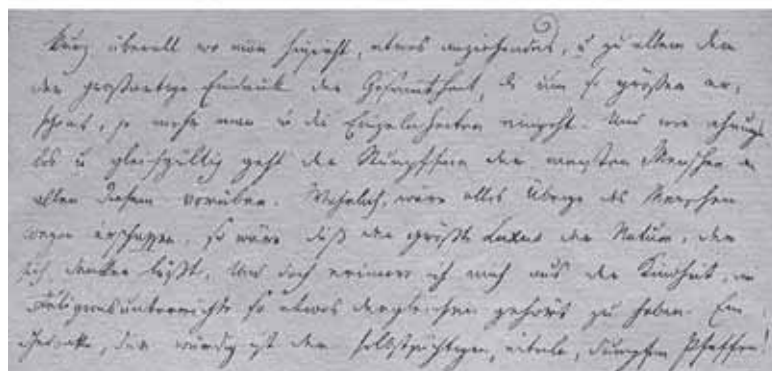 Kurz überall wo man hinsieht, etwas anziehendes, u zu allem dem
der großartige Eindruck der Gesammtheit, die um so größer er-
scheint, je mehr man in die Einzelnheiten eingeht. Und wie ahnungs
los u gleichgültig geht der Stumpfsinn der meisten Menschen an
allen diesem vorüber. Wahrlich, wäre alles Übrige des Menschen
wegen erschaffen, so wäre dieß der größte Luxus der Natur, der
sich denken läßt. Und doch erinnere ich mich aus der Kindheit, im
Religionsunterrichte so etwas dergleichen gehört zu haben. Ein
Gedanke, der würdig ist der selbstsüchtigen, eiteln, dumpfen Pfaffen!